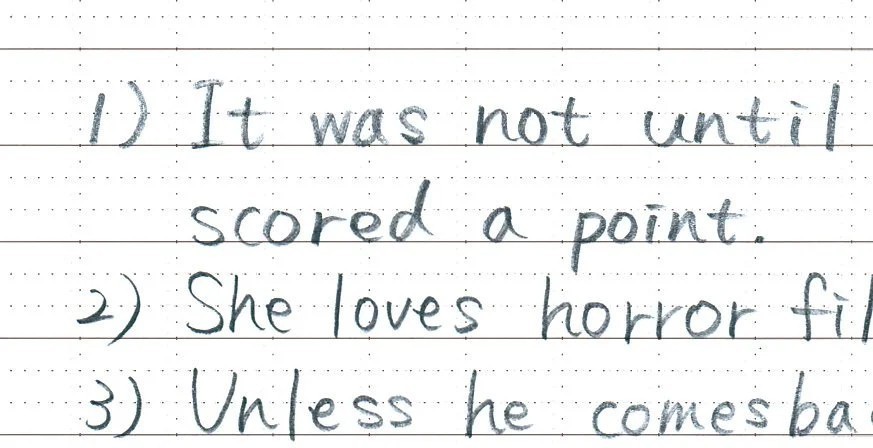 1) It was not until
scored a point.
2) She loves horror
3) Unless he comes